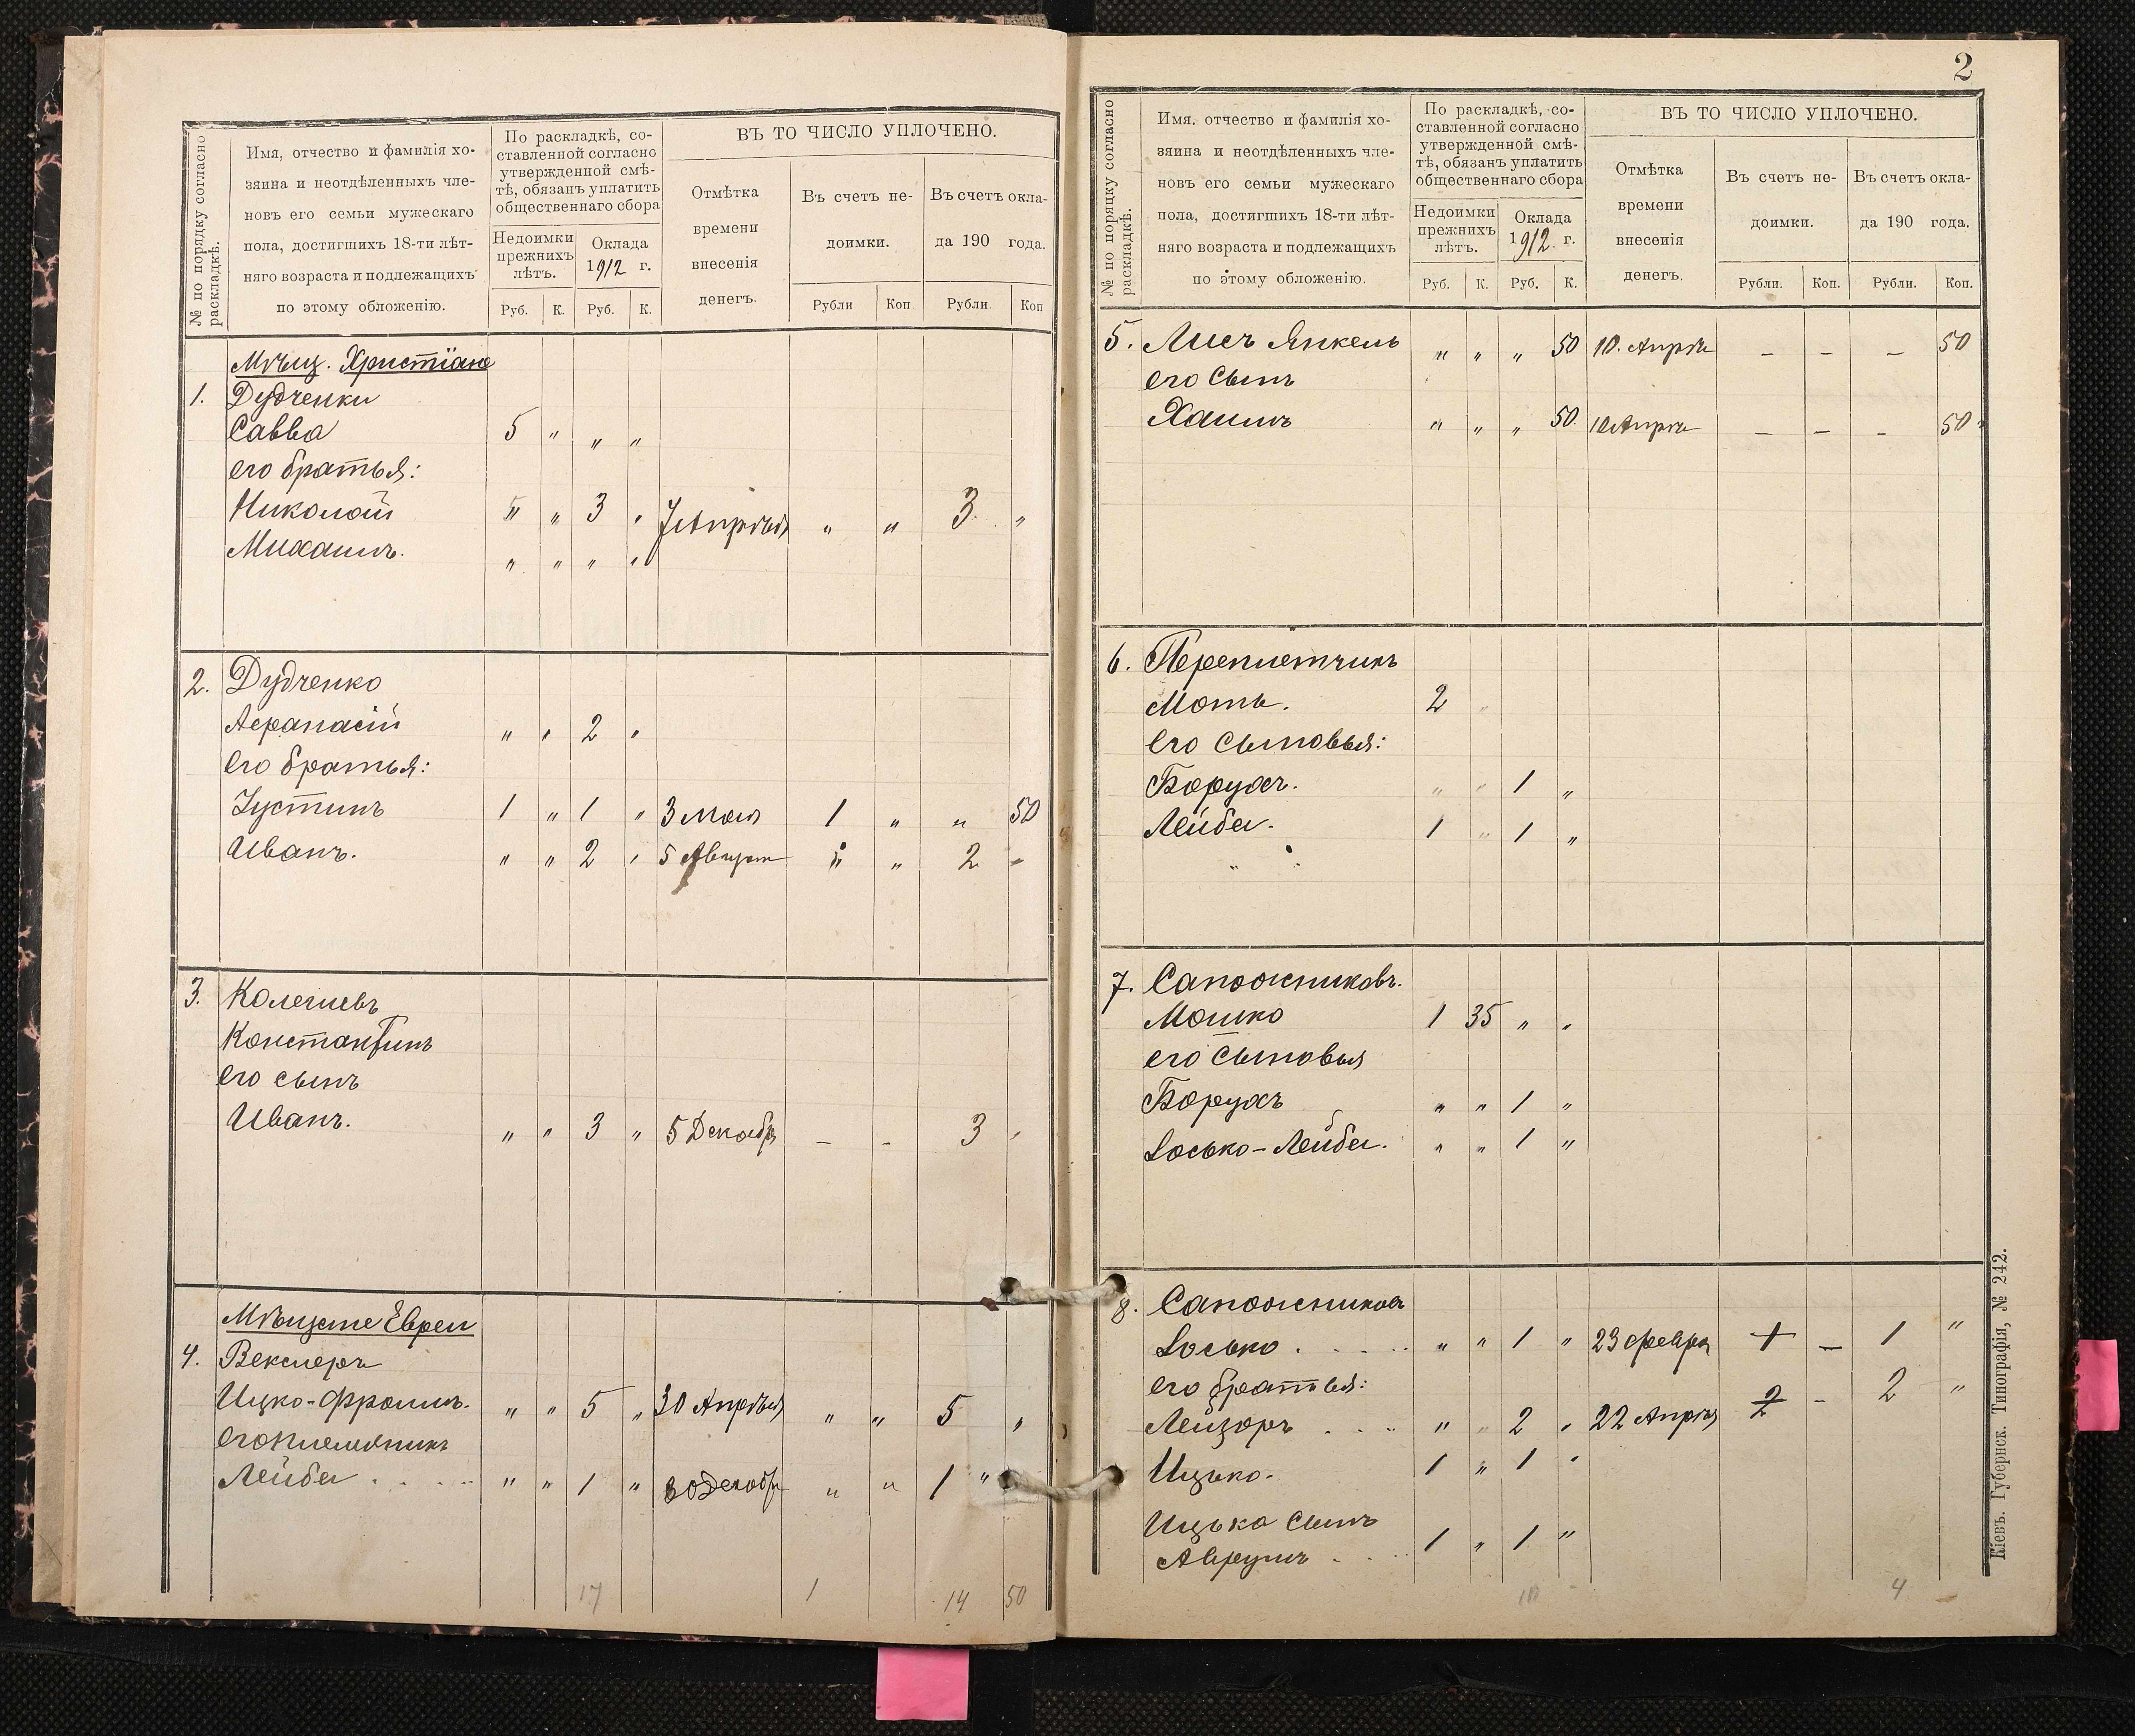 № по порядку согласно
раскладкѣ.
Имя, отчество и фамилія хо-
зяина и неотдѣленныхъ чле-
новъ его семьи мужескаго
пола, достигшихъ 18-ти лѣт-
няго возраста и подлежащихъ
по этому обложенію.
По раскладкѣ, со-
ставленной согласно
утвержденной смѣ-
тѣ, обязанъ уплатить
общественнаго сбора
Недоимки
прежнихъ
лѣтъ.
Оклада
1912 г.
Руб. К. Руб. К.
ВЪ ТО ЧИСЛО УПЛОЧЕНО.
Отмѣтка
времени
внесенія
денегъ.
Въ счетъ не-
доимки.
Въ счетъ окла-
да 190 года.
Рубли Коп Рубли. Коп
Мѣщ. Христіане
1. Дудченки
Савва 5 " " "
его братья:
Николай " " 3 " 7 Апрѣля " " 3 "
Михаилъ. " " " "
2. Дудченко
Афанасій " " 2 "
его братья:
Іустинъ 1 " 1 " 3 мая 1 " " 50
Иванъ. " " 2 " 5 Август " " 2 -
3. Колегиевъ
Константинъ
его сынъ
Иванъ. " " 3 " 5 Декабр - - 3 "
Мѣщане Евреи
4. Векслеръ
Ицко-Фроимъ. " " 5 " 30 Апрѣля " " 5 "
его племяникъ
Лейба " " 1 " 30 Декабр " " 1 "
17 1 14 50
2
№ по порядку согласно
раскладкѣ.
Имя, отчество и фамилія хо-
зяина и неотдѣленныхъ чле-
новъ его семьи мужескаго
пола, достигшихъ 18-ти лѣт-
няго возраста и подлежащихъ
по этому обложенію.
По раскладкѣ, со-
ставленной согласно
утвержденной смѣ-
тѣ, обязанъ уплатить
общественнаго сбора
Недоимки
прежнихъ
лѣтъ.
Оклада
1912 г.
Руб. К. Руб. К.
ВЪ ТО ЧИСЛО УПЛОЧЕНО.
Отмѣтка
времени
внесенія
денегъ.
Въ счетъ не-
доимки.
Въ счетъ окла-
да 190 года.
Рубли. Коп. Рубли. Коп.
5. Лисъ Янкель " " " 50 10. Апрѣля - - - 50
его сынъ
Хаимъ " " " 50 10 Апрѣля - - - 50
6. Переплетчикъ
Моть. 2 "
его сыновья:
Борухъ. " " 1 "
Лейба. 1 " 1 "
7. Сапожниковъ.
Мошко 1 35 " "
его сыновья
Борухъ " " 1 "
Іосько-Лейба. " " 1 "
8. Сапожниковъ
Іосько " " 1 " 23 февра 1 - 1 "
его братья:
Лейзоръ " " 2 " 22 Апрѣля 2 - 2 "
Ицько. 1 " 1 "
Ицька сынъ
Аврумъ 1 " 1 "
10 4
Кіевъ. Губернск. Типографія, № 242.